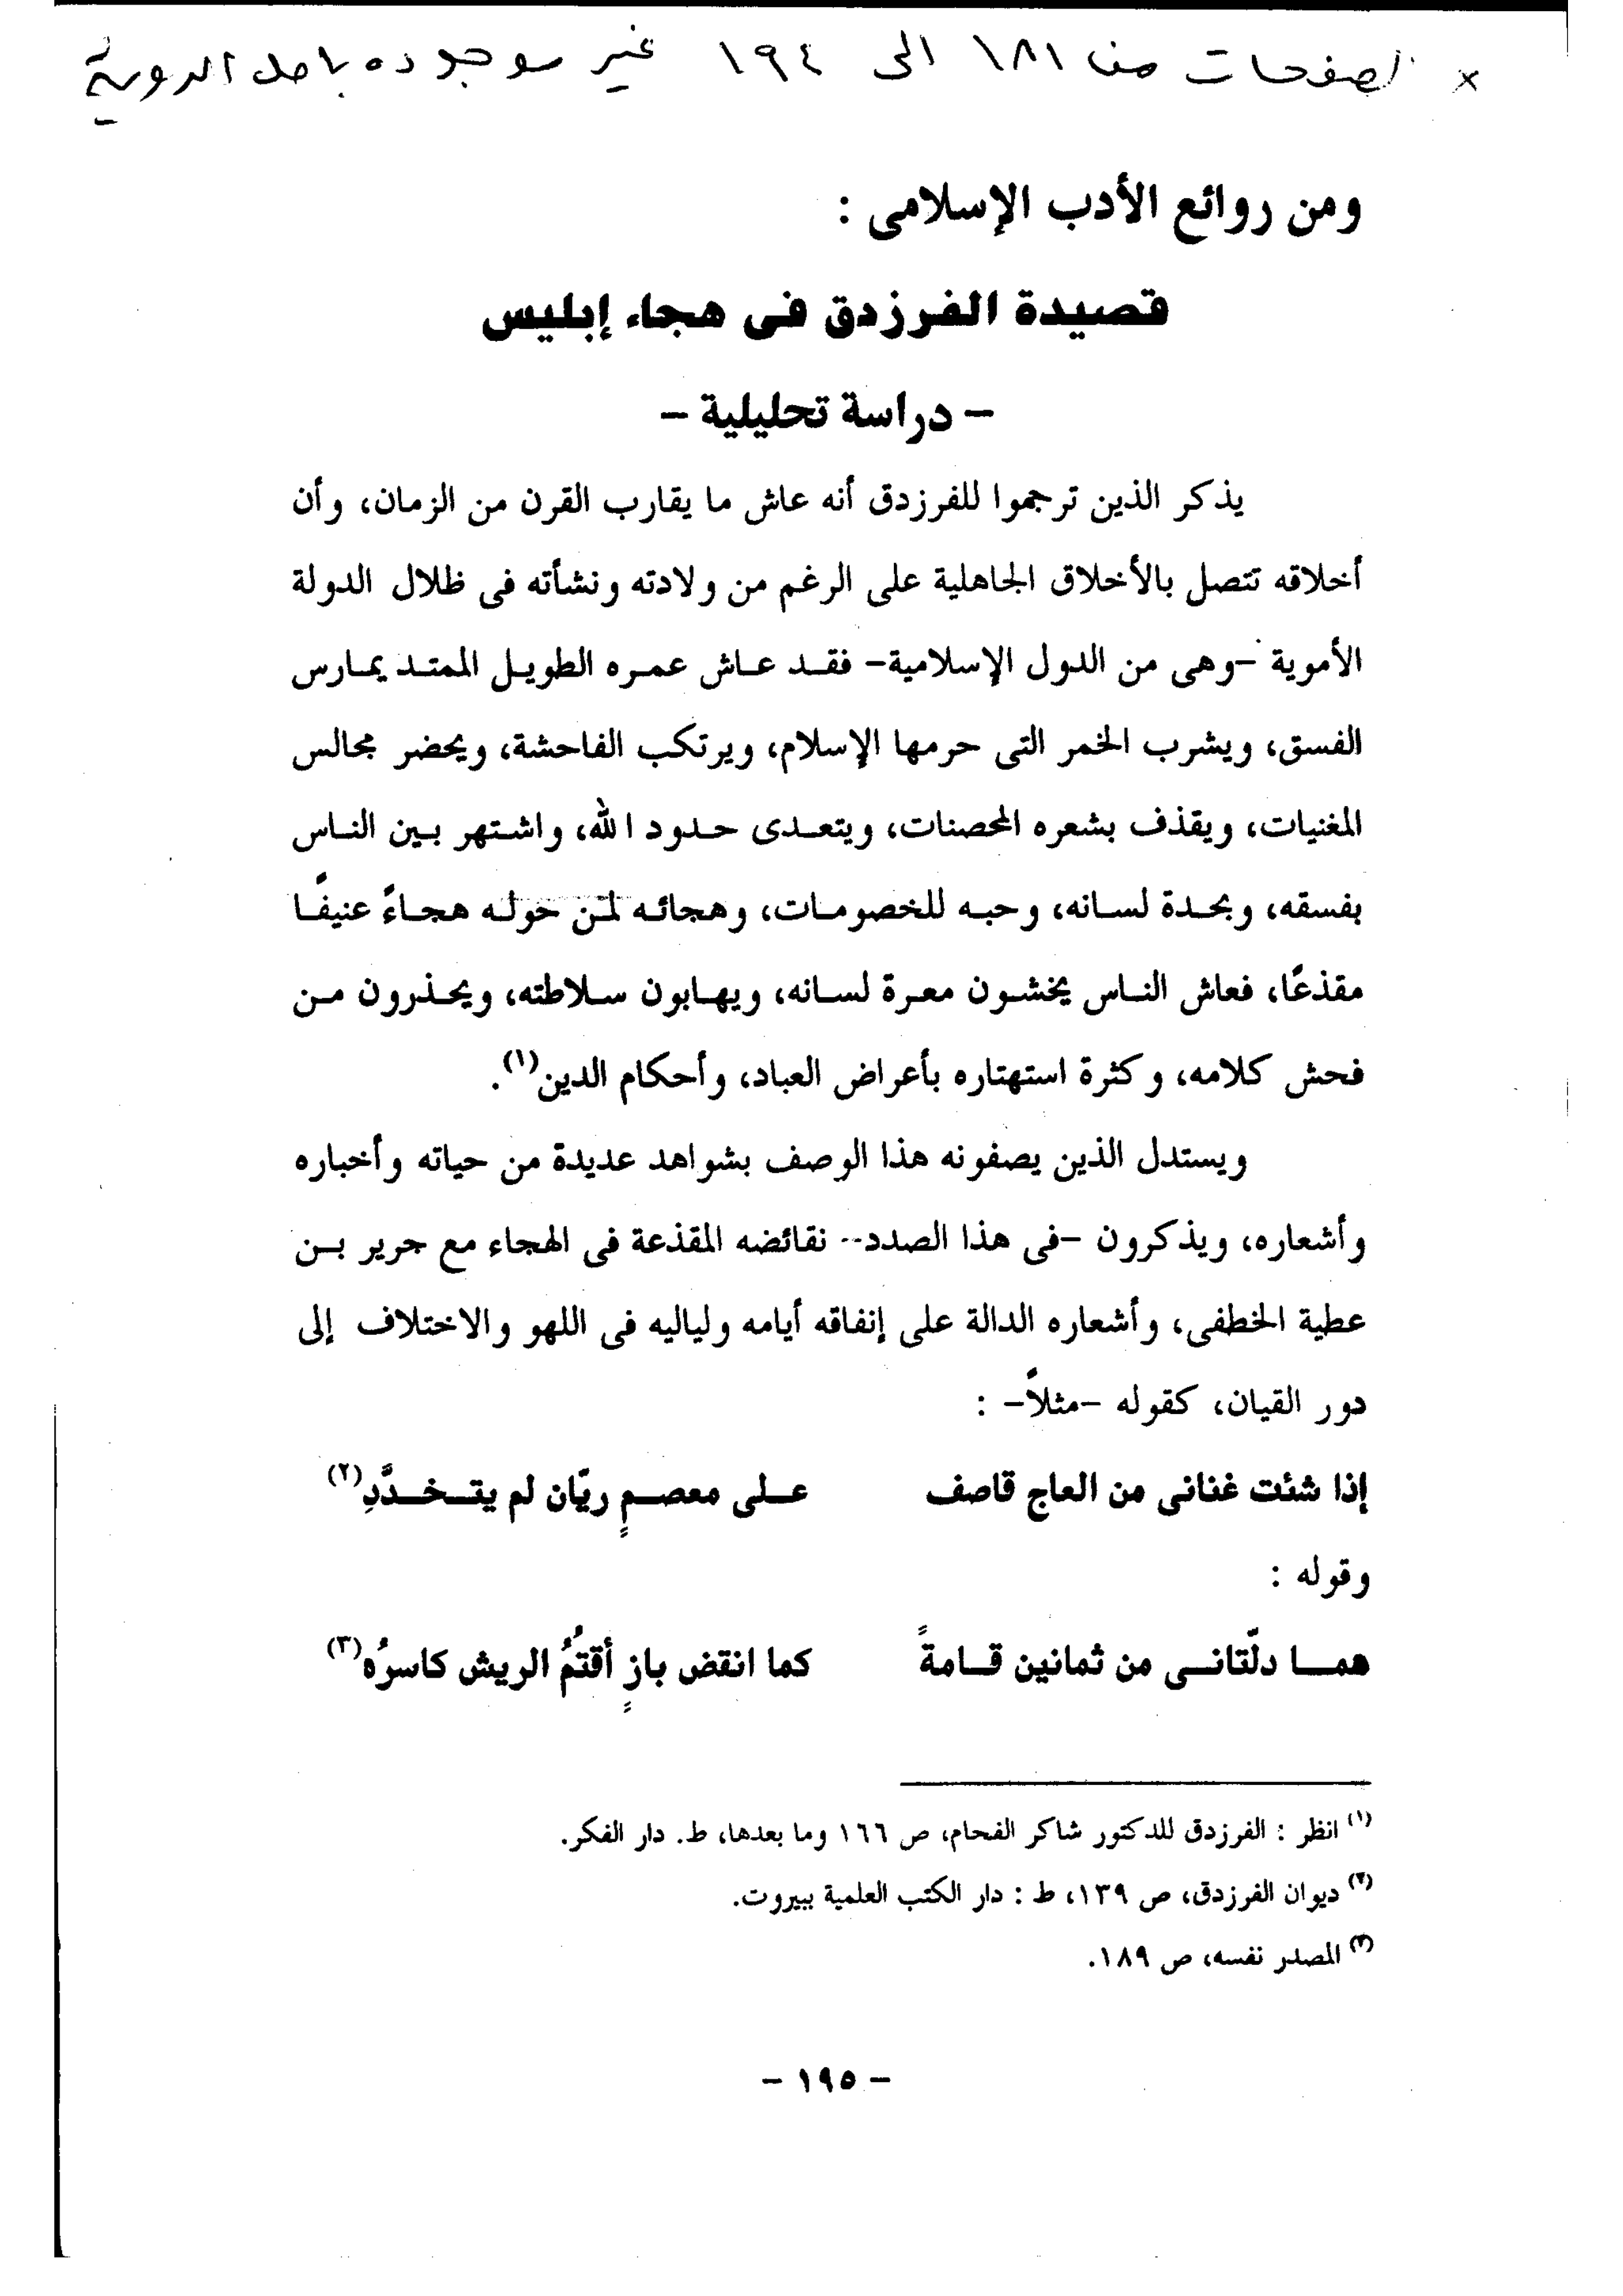 × الصفحات من ١٨١ الى ١٩٤ غير موجوده باصل الدورية
ومن روائع الأدب الإسلامى :
قصيدة الفرزدق فى هجاء إبليس
– دراسة تحليلية –
يذكر الذين ترجموا للفرزدق أنه عاش ما يقارب القرن من الزمان، وأن
أخلاقه تتصل بالأخلاق الجاهلية على الرغم من ولادته ونشأته فى ظلال الدولة
الأموية –وهى من الدول الإسلامية– فقد عاش عمره الطويل الممتد يمارس
الفسق، ويشرب الخمر التى حرمها الإسلام، ويرتكب الفاحشة، ويحضر مجالس
المغنيات، ويقذف بشعره المحصنات، ويتعدى حدود الله، واشتهر بين الناس
بفسقه، وبحدة لسانه، وحبه للخصومات، وهجائه لمن حوله هجاءً عنيفًا
مقذعًا، فعاش الناس يخشون معرة لسانه، ويهابون سلاطته، ويحذرون من
فحش كلامه، وكثرة استهتاره بأعراض العباد، وأحكام الدين(١).
ويستدل الذين يصفونه هذا الوصف بشواهد عديدة من حياته وأخباره
وأشعاره، ويذكرون –فى هذا الصدد-- نقائضه المقذعة فى الهجاء مع جرير بن
عطية الخطفى، وأشعاره الدالة على إنفاقه أيامه ولياليه فى اللهو والاختلاف إلى
دور القيان، كقوله –مثلاً– :
إذا شئت غنانى من العاج قاصف على معصمٍ ريّان لم يتخدَّدِ(٢)
وقوله :
هما دلّتانى من ثمانين قامةً كما انقض بازٍ أقتمُ الريش كاسرُه(٣)
(١) انظر : الفرزدق للدكتور شاكر الفحام، ص ١٦٦ وما بعدها، ط. دار الفكر.
(٢) ديوان الفرزدق، ص ١٣٩، ط : دار الكتب العلمية ببيروت.
(٣) المصدر نفسه، ص ١٨٩.
– ١٩٥ –